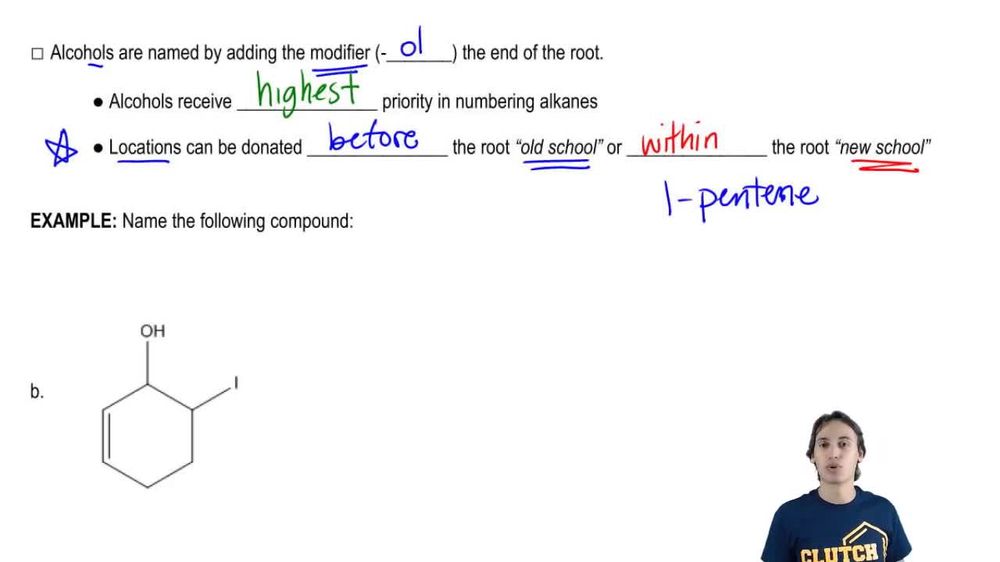 □ Alcohols are named by adding the modifier (- ol ) the end of the root.
● Alcohols receive highest priority in numbering alkanes
☆ ● Locations can be donated before the root “old school” or within the root “new school”
1-pentene
EXAMPLE: Name the following compound:
OH
I
b.
CLUTCH